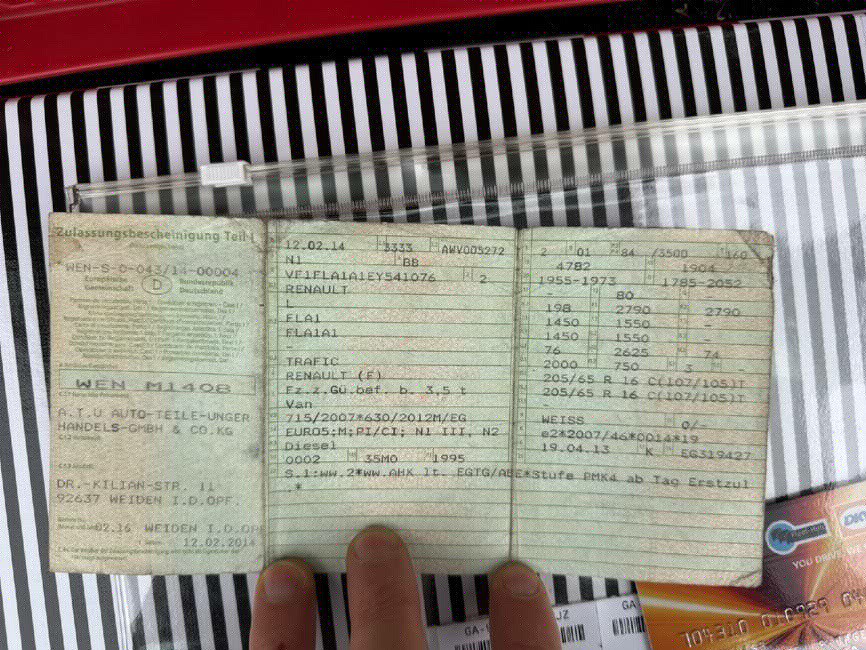 Zulassungsbescheinigung Teil I
WEN-S-0-043/14-00004
Europäische Gemeinschaft
D
Bundesrepublik Deutschland
WEN M1408
A.T.U AUTO-TEILE-UNGER
HANDELS-GMBH & CO.KG
DR.-KILIAN-STR. 11
92637 WEIDEN I.D.OPF.
02.16 WEIDEN I.D.OP
12.02.2014
12.02.14 3333 AWV005272
N1 BB
VF1FLA1A1EY541076 2
RENAULT
L
FLA1
FLA1A1
-
TRAFIC
RENAULT (F)
Fz.z.Gü.bef. b. 3,5 t
Van
715/2007*630/2012M/EG
EURO5;M;PI/CI; N1 III, N2
Diesel
0002 35M0 1995
S.1:ww.2*ww.AHK lt. EGTG/ABE*Stufe PMK4 ab Tag Erstzul
.*
2 01 84 /3500 160
4782 1904
1955-1973 1785-2052
- 80 -
198 2790 2790
1450 1550 -
1450 1550 -
76 2625 74
2000 750 3
205/65 R 16 C(107/105)T
205/65 R 16 C(107/105)T
-
WEISS 0/-
e2*2007/46*0014*19
19.04.13 K EG319427
DK
YOU DRIVE, W
704310 010729 04
GA-
JZ
GA-